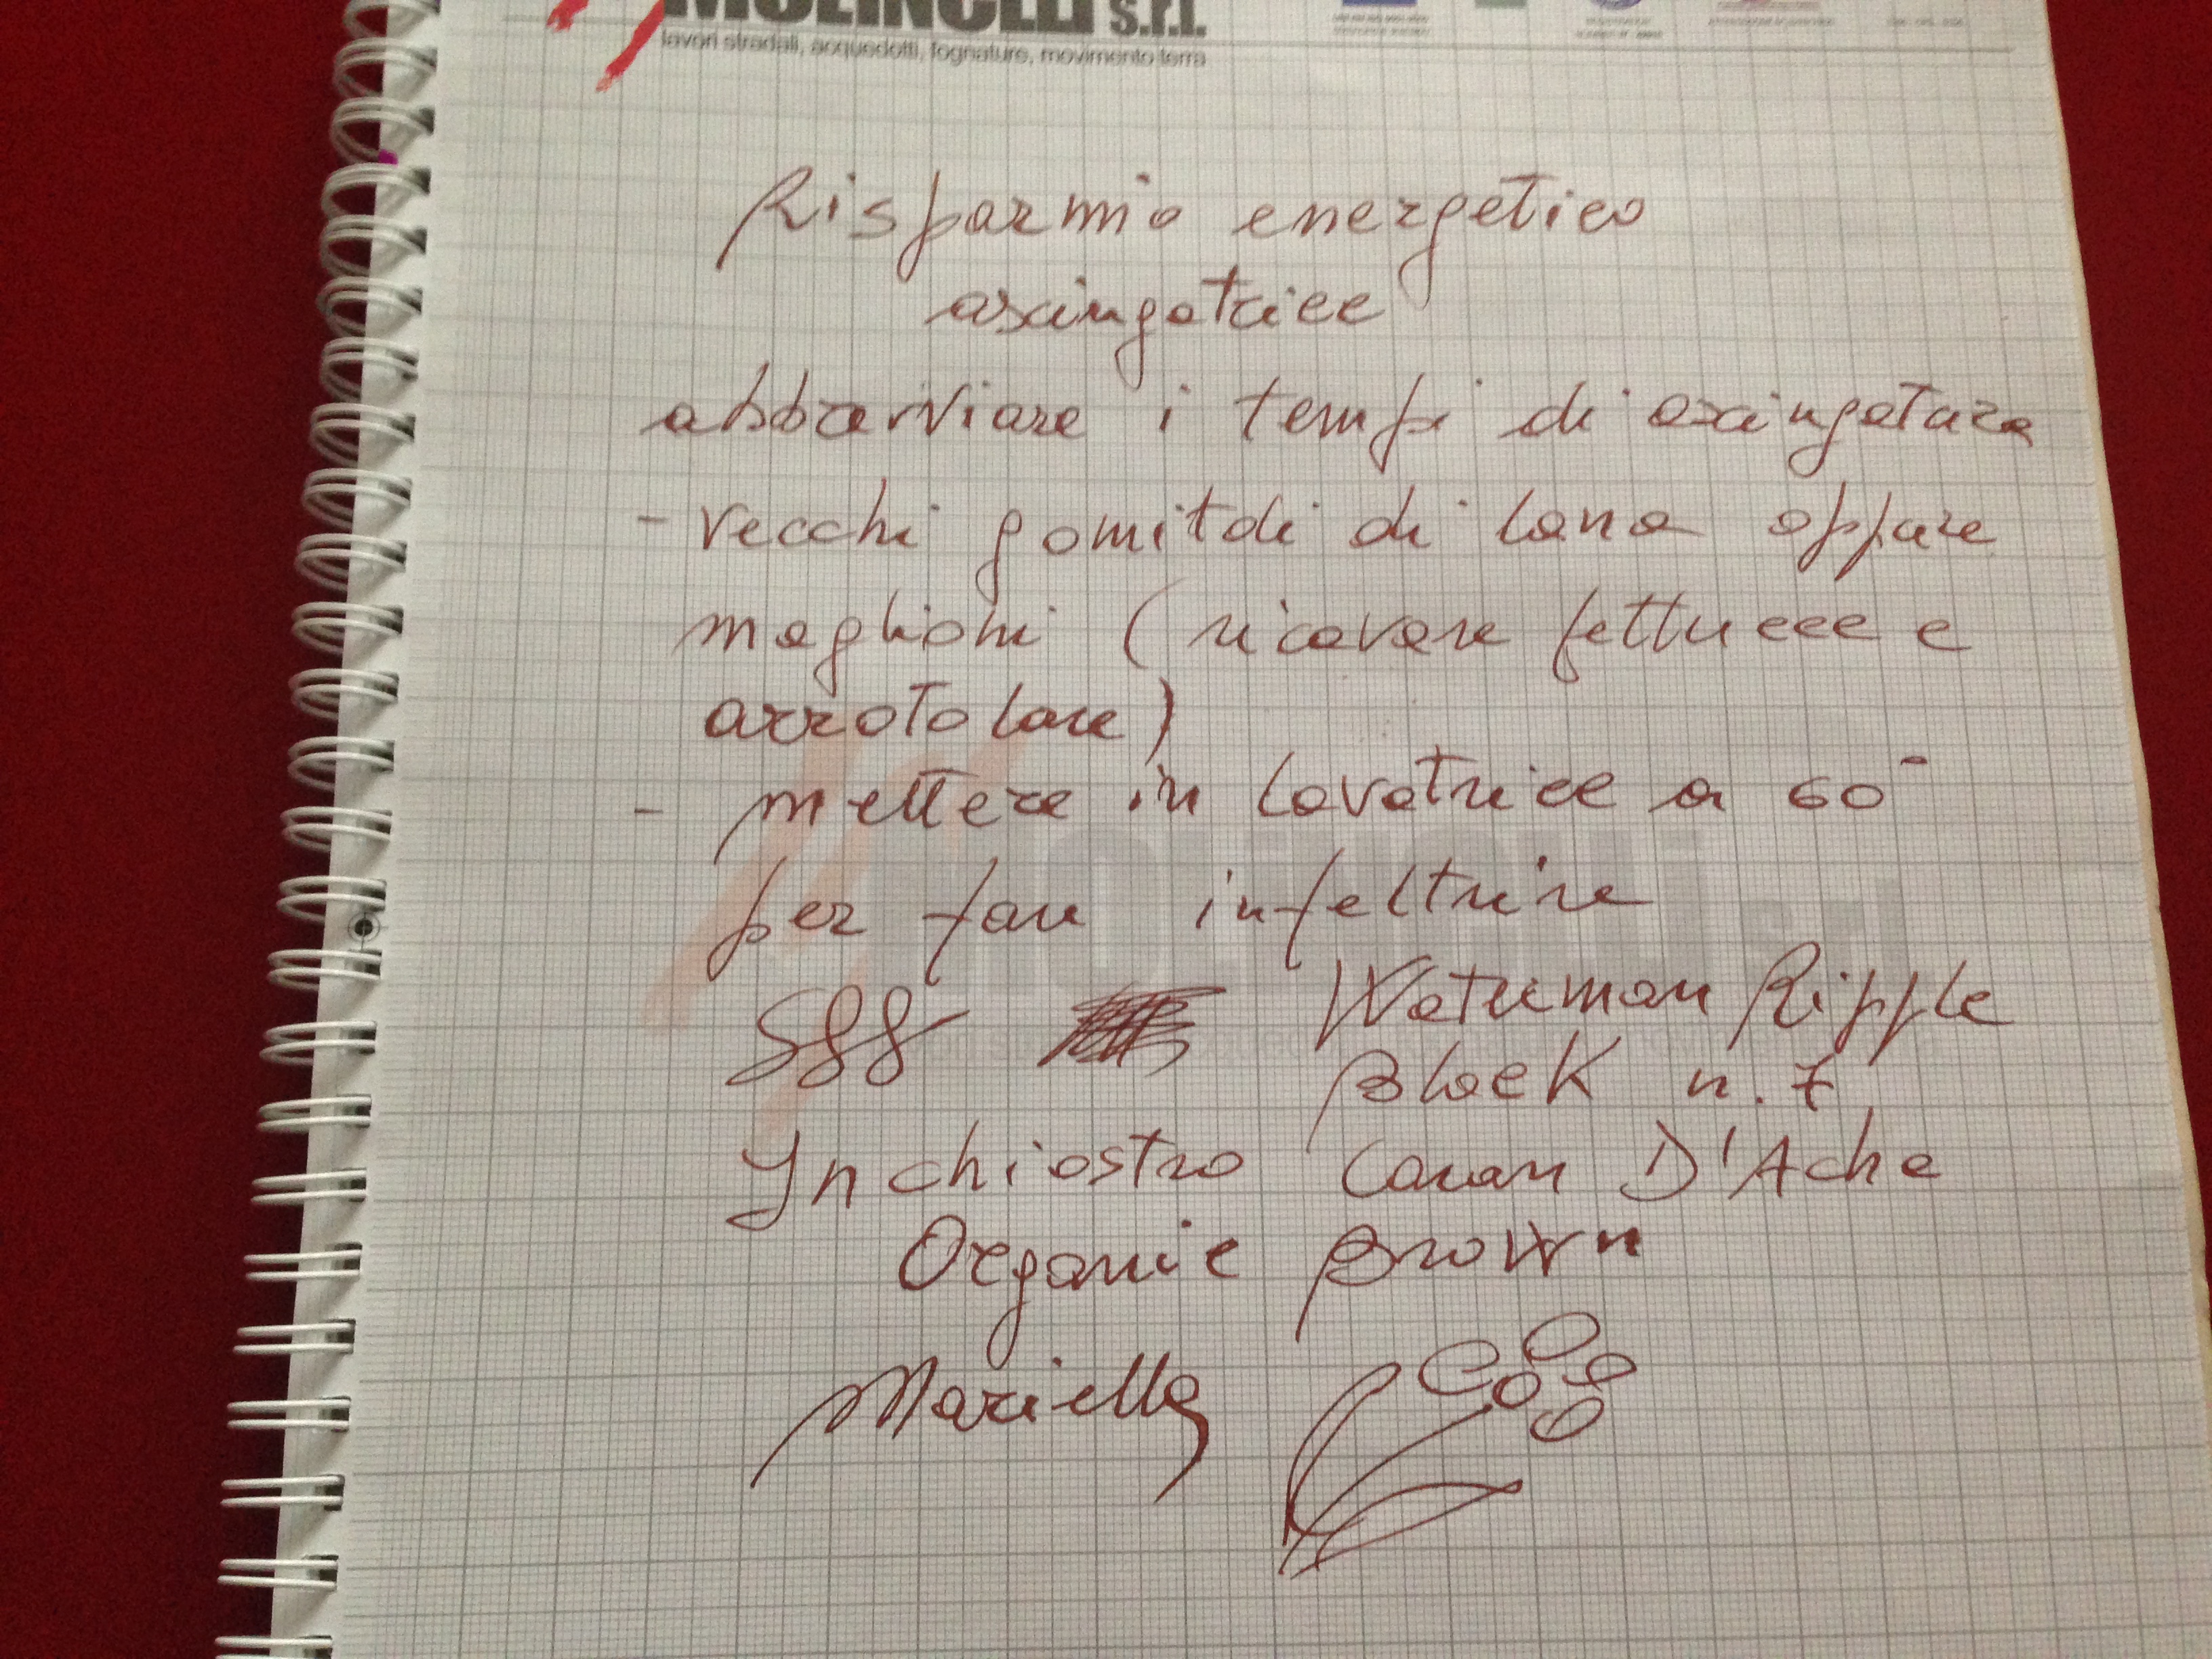 MOLINCLLI s.r.l.
lavori stradali, acquedotti, fognature, movimento terra
Risparmio energetico
asciugatrice
abbreviare i tempi di asciugatura
- vecchi gomitoli di lana oppure
maglioni (ricavare fettucce e
arrotolare)
- mettere in lavatrice a 60°
per fare infeltrire
Waterman Ripple
Black n. 7
Inchiostro Caran D'Ache
Organic Brown
Mariella